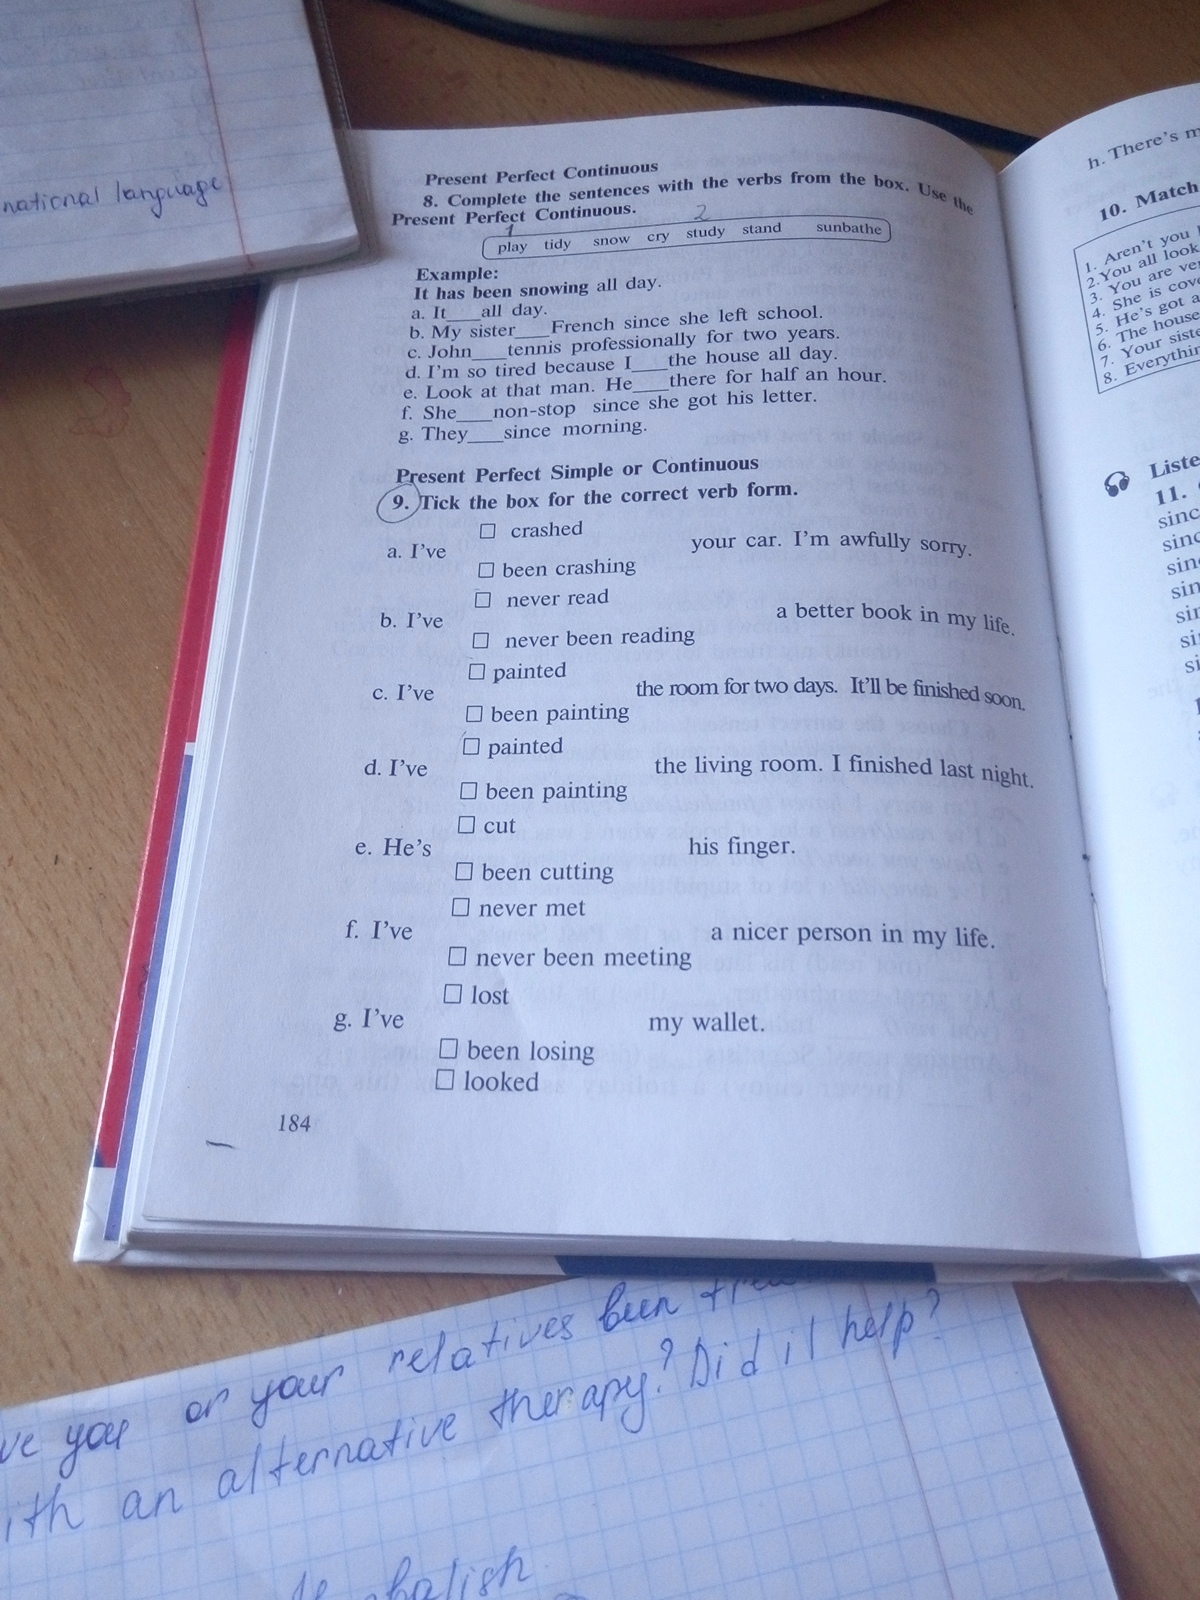 national language
Present Perfect Continuous
8. Complete the sentences with the verbs from the box. Use the
Present Perfect Continuous.
1 2
play tidy snow cry study stand sunbathe
Example:
It has been snowing all day.
a. It___all day.
b. My sister___French since she left school.
c. John___tennis professionally for two years.
d. I'm so tired because I___the house all day.
e. Look at that man. He___there for half an hour.
f. She___non-stop since she got his letter.
g. They___since morning.
Present Perfect Simple or Continuous
9. Tick the box for the correct verb form.
☐ crashed
a. I've your car. I'm awfully sorry.
☐ been crashing
☐ never read
b. I've a better book in my life.
☐ never been reading
☐ painted
c. I've the room for two days. It'll be finished soon.
☐ been painting
☐ painted
d. I've the living room. I finished last night.
☐ been painting
☐ cut
e. He's his finger.
☐ been cutting
☐ never met
f. I've a nicer person in my life.
☐ never been meeting
☐ lost
g. I've my wallet.
☐ been losing
☐ looked
184
h. There's
10. Match
1. Aren't you
2. You all look
3. You are
4. She is
5. He's got a
6. The house
7. Your
8.
11.
you or your relatives been
an alternative therapy? Did it help?